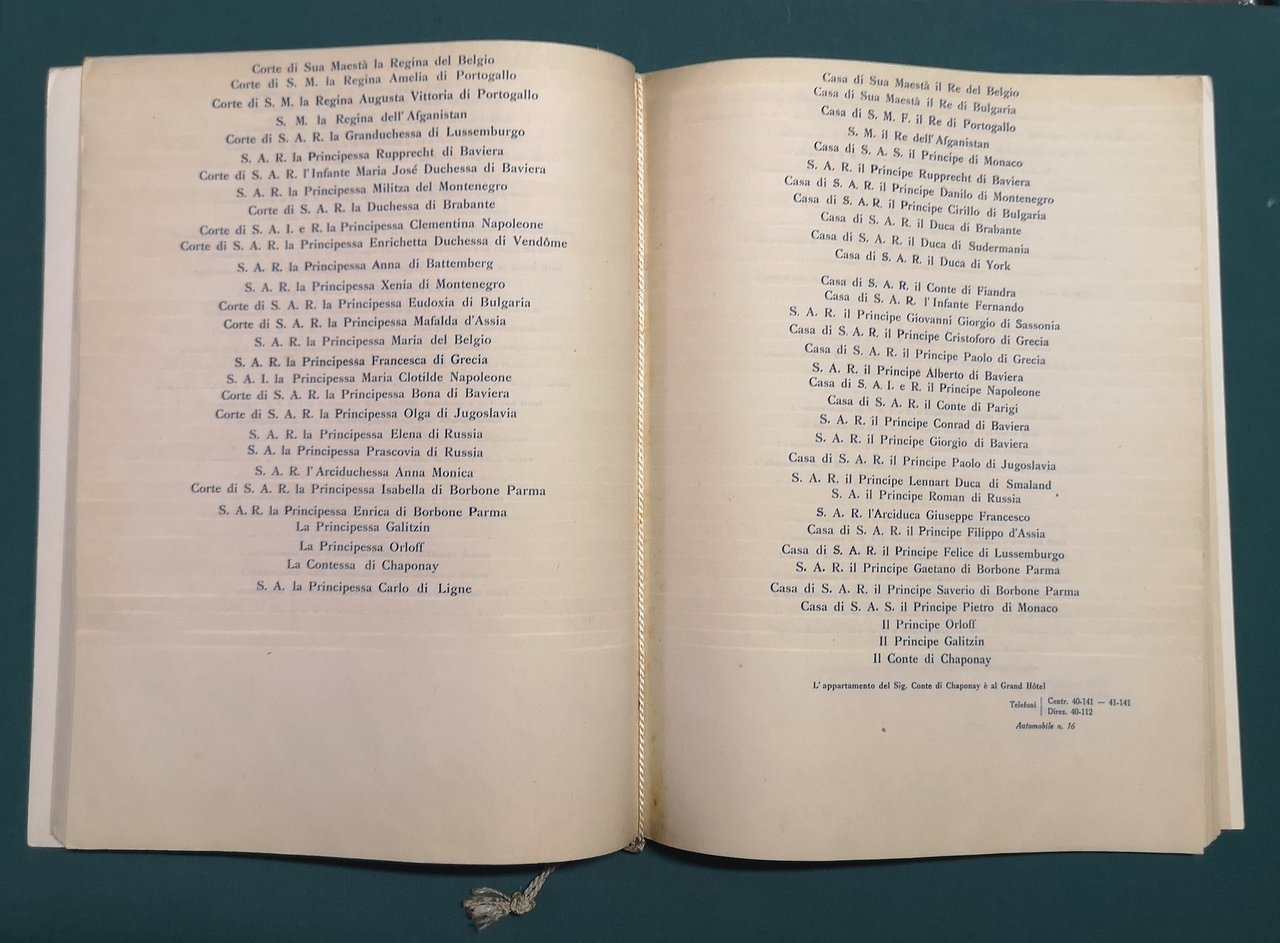 Corte di Sua Maestà la Regina del Belgio
Corte di S. M. la Regina Amelia di Portogallo
Corte di S. M. la Regina Augusta Vittoria di Portogallo
S. M. la Regina dell'Afganistan
Corte di S. A. R. la Granduchessa di Lussemburgo
S. A. R. la Principessa Rupprecht di Baviera
Corte di S. A. R. l'Infante Maria José Duchessa di Baviera
S. A. R. la Principessa Militza del Montenegro
Corte di S. A. R. la Duchessa di Brabante
Corte di S. A. I. e R. la Principessa Clementina Napoleone
Corte di S. A. R. la Principessa Enrichetta Duchessa di Vendôme
S. A. R. la Principessa Anna di Battemberg
S. A. R. la Principessa Xenia di Montenegro
Corte di S. A. R. la Principessa Eudoxia di Bulgaria
Corte di S. A. R. la Principessa Mafalda d'Assia
S. A. R. la Principessa Maria del Belgio
S. A. R. la Principessa Francesca di Grecia
S. A. I. la Principessa Maria Clotilde Napoleone
Corte di S. A. R. la Principessa Bona di Baviera
Corte di S. A. R. la Principessa Olga di Jugoslavia
S. A. R. la Principessa Elena di Russia
S. A. la Principessa Prascovia di Russia
S. A. R. l'Arciduchessa Anna Monica
Corte di S. A. R. la Principessa Isabella di Borbone Parma
S. A. R. la Principessa Enrica di Borbone Parma
La Principessa Galitzin
La Principessa Orloff
La Contessa di Chaponay
S. A. la Principessa Carlo di Ligne
Casa di Sua Maestà il Re del Belgio
Casa di Sua Maestà il Re di Bulgaria
Casa di S. M. F. il Re di Portogallo
S. M. il Re dell'Afganistan
Casa di S. A. S. il Principe di Monaco
S. A. R. il Principe Rupprecht di Baviera
Casa di S. A. R. il Principe Danilo di Montenegro
Casa di S. A. R. il Principe Cirillo di Bulgaria
Casa di S. A. R. il Duca di Brabante
Casa di S. A. R. il Duca di Sudermania
Casa di S. A. R. il Duca di York
Casa di S. A. R. il Conte di Fiandra
Casa di S. A. R. l'Infante Fernando
S. A. R. il Principe Giovanni Giorgio di Sassonia
Casa di S. A. R. il Principe Cristoforo di Grecia
Casa di S. A. R. il Principe Paolo di Grecia
S. A. R. il Principe Alberto di Baviera
Casa di S. A. I. e R. il Principe Napoleone
Casa di S. A. R. il Conte di Parigi
S. A. R. il Principe Conrad di Baviera
S. A. R. il Principe Giorgio di Baviera
Casa di S. A. R. il Principe Paolo di Jugoslavia
S. A. R. il Principe Lennart Duca di Smaland
S. A. il Principe Roman di Russia
S. A. R. l'Arciduca Giuseppe Francesco
Casa di S. A. R. il Principe Filippo d'Assia
Casa di S. A. R. il Principe Felice di Lussemburgo
S. A. R. il Principe Gaetano di Borbone Parma
Casa di S. A. R. il Principe Saverio di Borbone Parma
Casa di S. A. S. il Principe Pietro di Monaco
Il Principe Orloff
Il Principe Galitzin
Il Conte di Chaponay
L'appartamento del Sig. Conte di Chaponay è al Grand Hôtel
Telefoni | Centr. 40-141 — 41-141
Direz. 40-112
Automobile n. 16